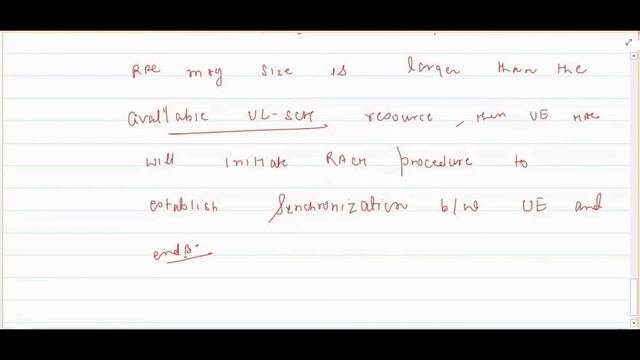 RRC msg size is larger than the
available UL-SCH resource, then UE MAC
will initiate RACH procedure to
establish Synchronization b/w UE and
endB.